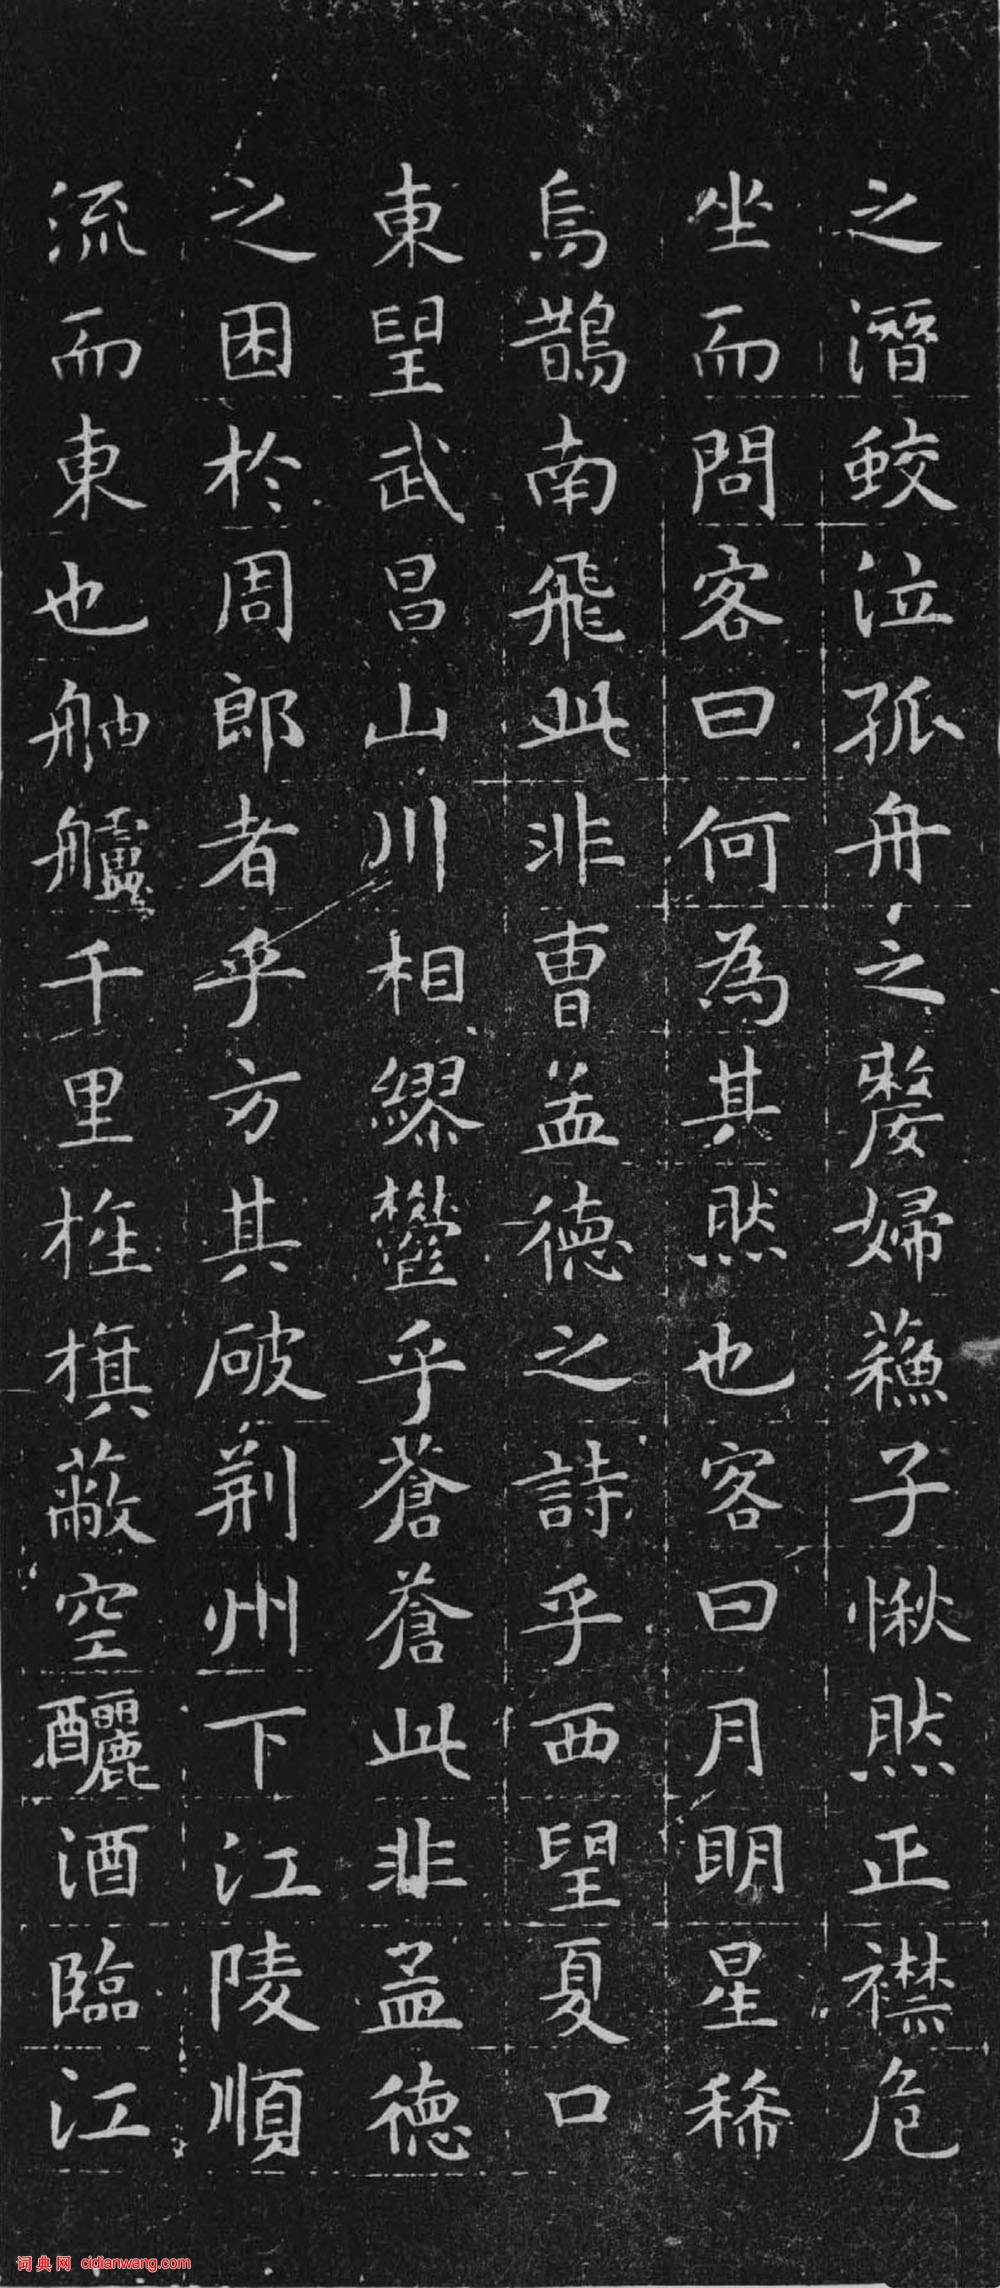 之潛蛟泣孤舟之嫠婦蘓子愀然正襟危
坐而問客曰何為其然也客曰月明星稀
烏鵲南飛此非曹孟德之詩乎西望夏口
東望武昌山川相繆鬱乎蒼蒼此非孟德
之困於周郎者乎方其破荆州下江陵順
流而東也舳艫千里旌旗蔽空釃酒臨江
词典网 cidianwang.com